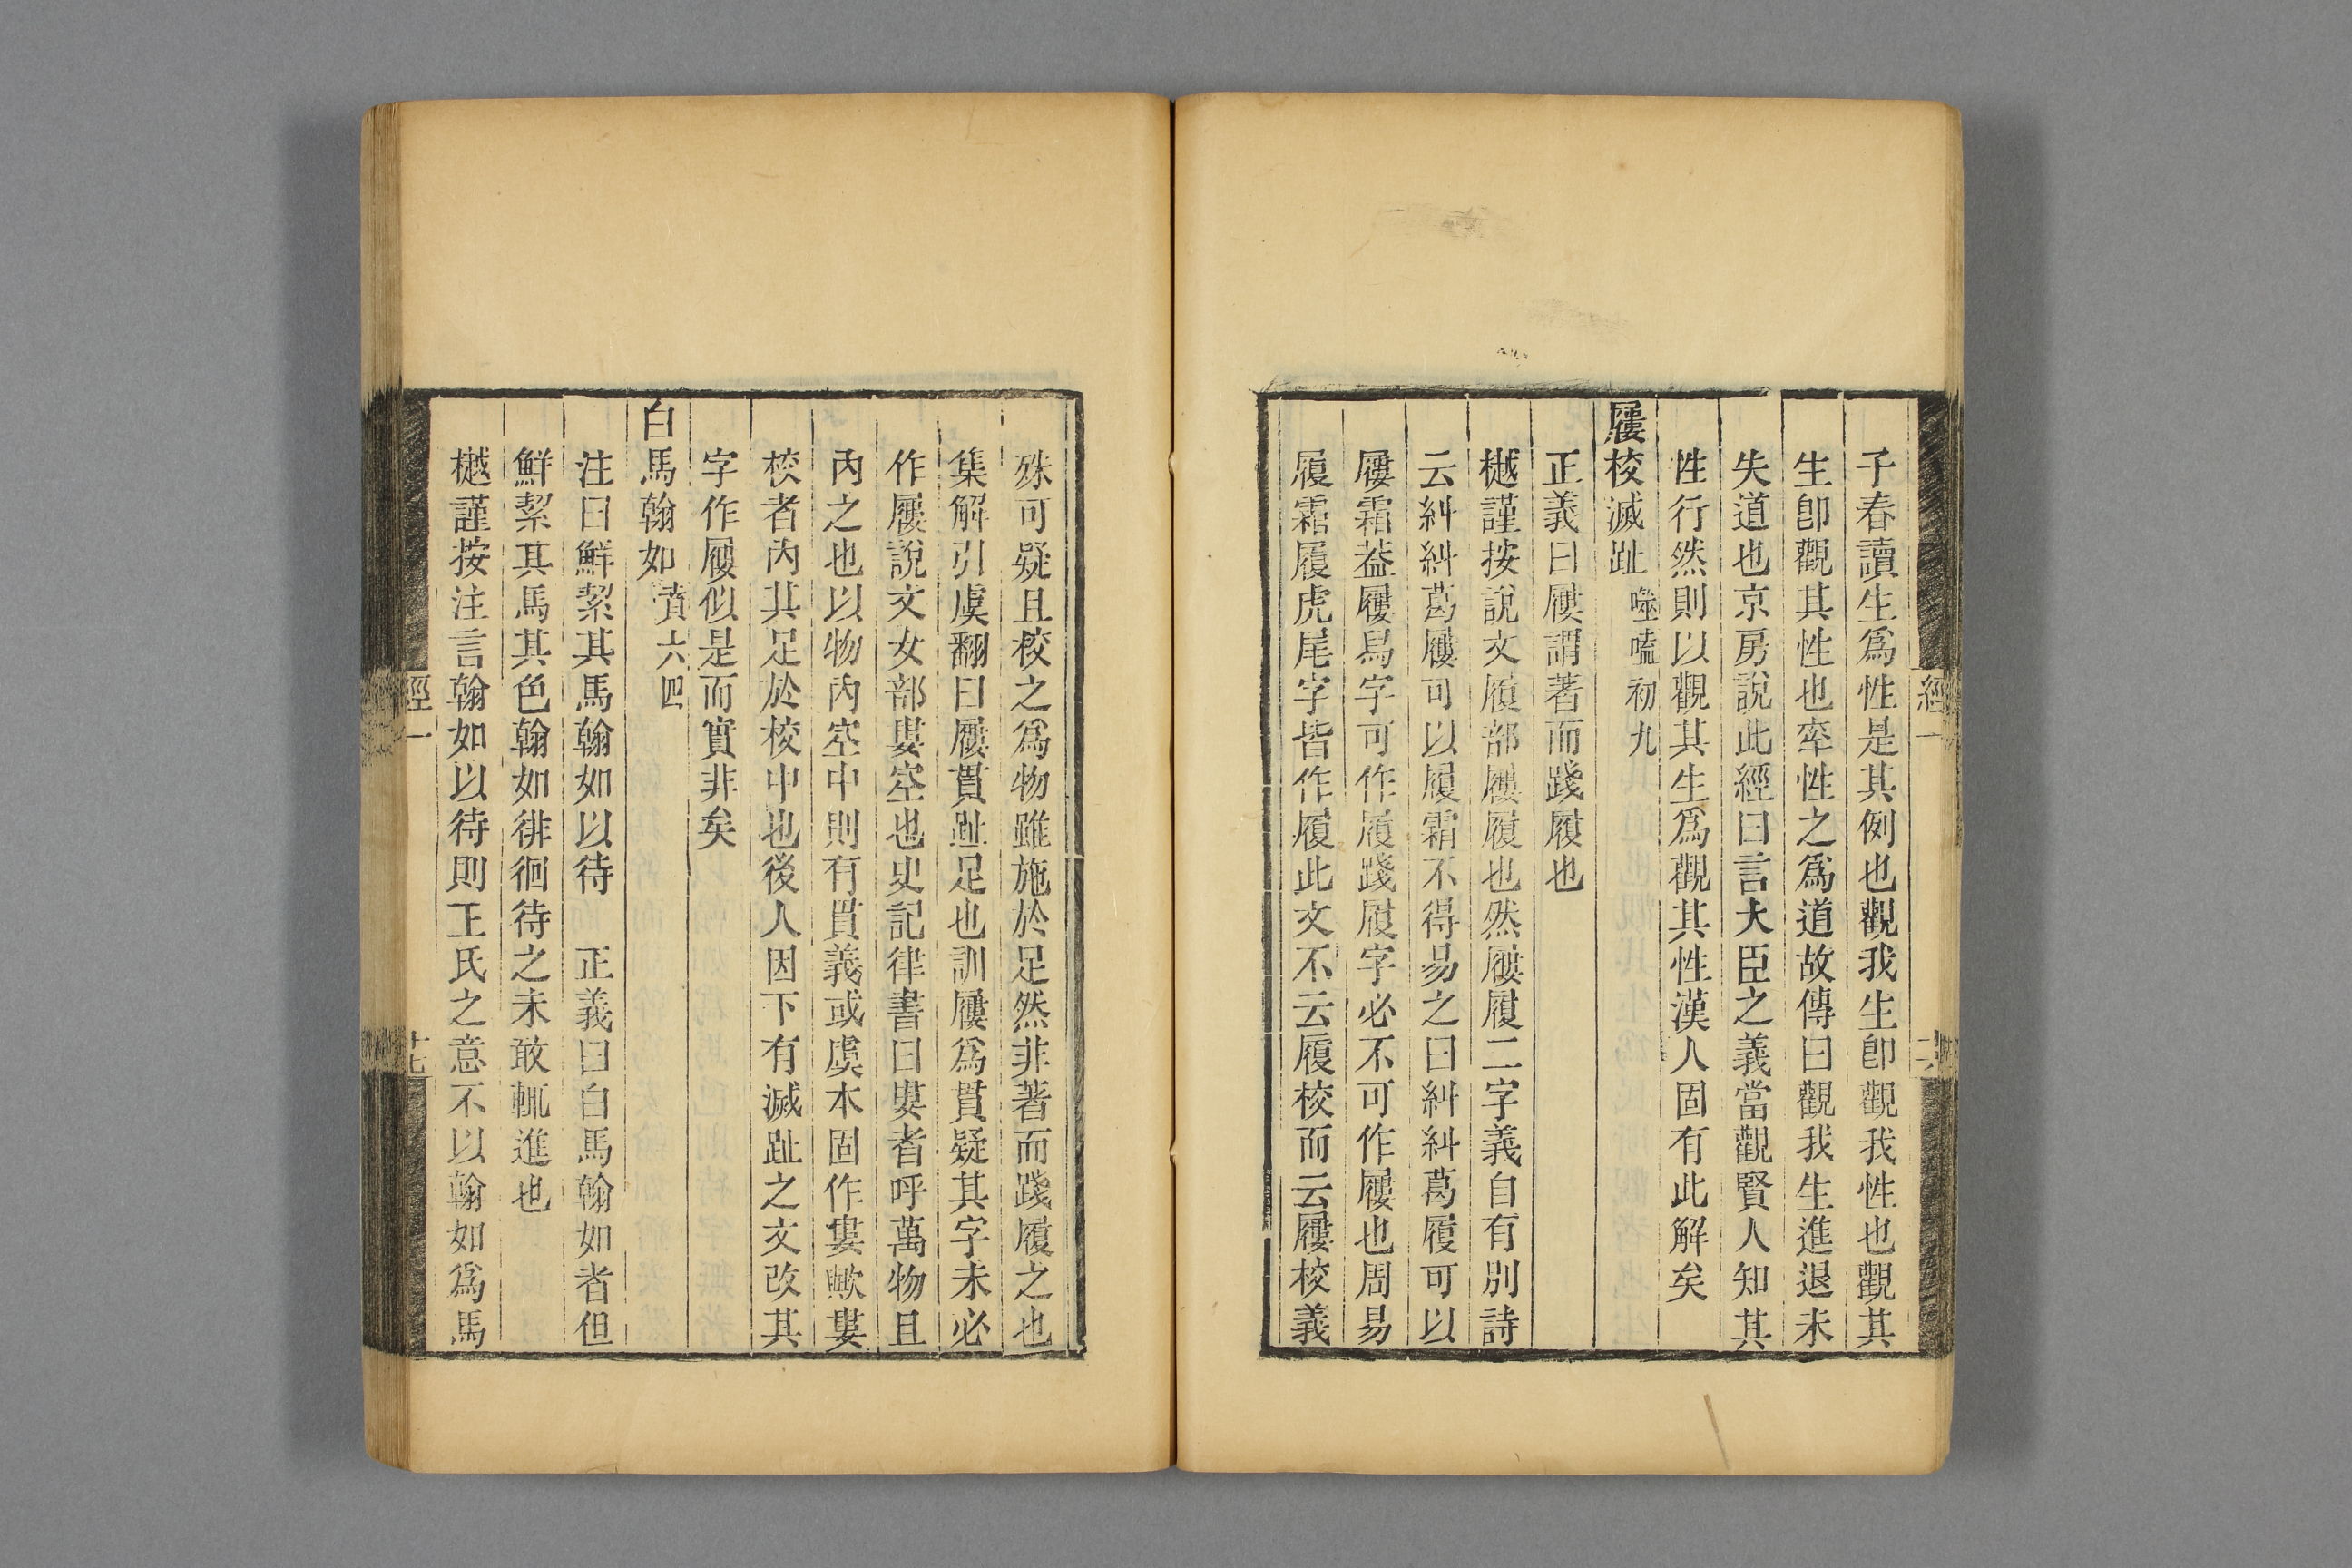 子春讀生爲性是其例也觀我生卽觀我性也觀其
生卽觀其性也率性之爲道故傳曰觀我生進退未
失道也京房說此經曰言大臣之義當觀賢人知其
性行然則以觀其生爲觀其性漢人固有此解矣
屨校滅趾噬嗑初九
正義曰屨謂著而踐履也
樾謹按說文履部屨履也然屨履二字義自有別詩
云糾糾葛屨可以履霜不得易之曰糾糾葛履可以
屨霜葢屨舄字可作履踐履字必不可作屨也周易
履霜履虎尾字皆作履此文不云履校而云屨校義
殊可疑且校之爲物雖施於足然非著而踐履之也
集解引虞翻曰屨貫趾足也訓屨爲貫疑其字未必
作屨說文女部婁空也史記律書曰婁者呼萬物且
內之也以物內空中則有貫義或虞本固作婁歟婁
校者內其足於校中也後人因下有滅趾之文改其
字作屨似是而實非矣
白馬翰如賁六四
注曰鮮絜其馬翰如以待　正義曰白馬翰如者但
鮮絜其馬其色翰如徘徊待之未敢輒進也
樾謹按注言翰如以待則王氏之意不以翰如爲馬
經一
經一